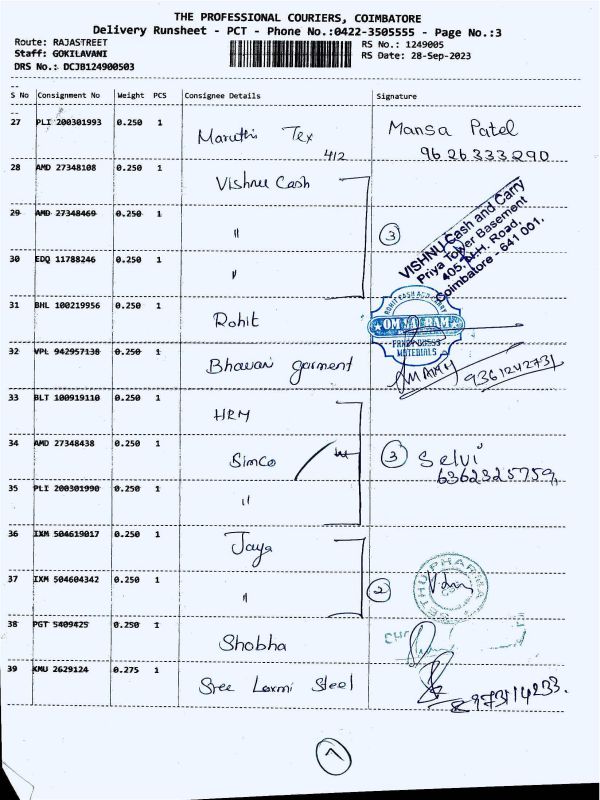 THE PROFESSIONAL COURIERS, COIMBATORE
Delivery Runsheet - PCT - Phone No.:0422-3505555 - Page No.:3
Route: RAJASTREET RS No.: 1249005
Staff: GOKILAVANI RS Date: 28-Sep-2023
DRS No.: DCJB124900503
S No Consignment No Weight PCS Consignee Details Signature
27 PLI 200301993 0.250 1 Maruthi Tex Mansa Patel
412 9626333290
28 AMD 27348108 0.250 1 Vishnu Cash
29 AMD 27348469 0.250 1 " 3
VISHNU Cash and Carry
Priya Tower Basement
405, N.H. Road,
Coimbatore - 641 001.
30 EDQ 11788246 0.250 1 "
31 BHL 100219956 0.250 1 Rohit
ROHIT CASH AND CARRY
OM SAI RAM
MATERIALS
32 VPL 942957138 0.250 1 Bhavani garment 9361242731
33 BLT 100919110 0.250 1 HRM
34 AMD 27348438 0.250 1 Simco 3 Selvi
6362325759
35 PLI 200301990 0.250 1 "
36 IXM 504619017 0.250 1 Jaya
37 IXM 504604342 0.250 1 " 2
SETHU PHARMA
38 PGT 5409425 0.250 1 Shobha
39 KMU 2629124 0.275 1 Sree Laxmi Steel
7